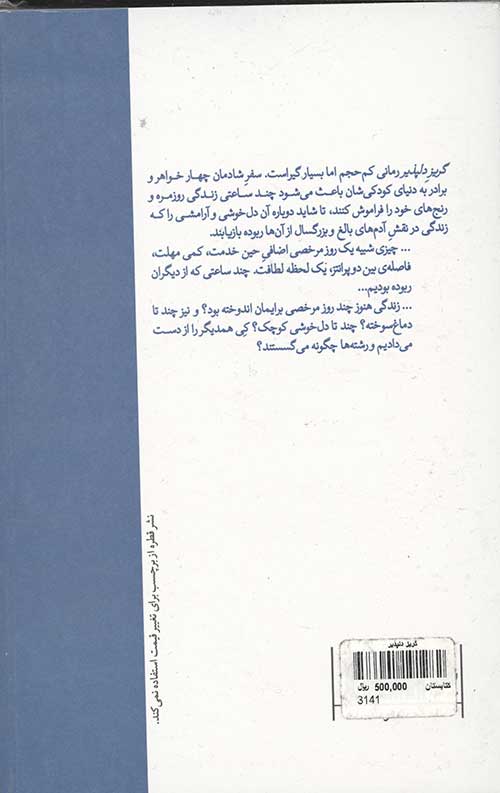 گریزِ دلپذیر رمانی کم‌حجم اما بسیار گیراست. سفرِ شادمان چهار خواهر و
برادر به دنیای کودکی‌شان باعث می‌شود چند ساعتی زندگی روزمره و
رنج‌های خود را فراموش کنند، تا شاید دوباره آن دل‌خوشی و آرامشی را که
زندگی در نقشِ آدم‌های بالغ و بزرگسال از آن‌ها ربوده بازیابند.
... چیزی شبیه یک روز مرخصی اضافیِ حین خدمت، کمی مهلت،
فاصله‌ی بین دو پرانتز، یک لحظه لطافت. چند ساعتی که از دیگران
ربوده بودیم...
... زندگی هنوز چند روز مرخصی برایمان اندوخته بود؟ و نیز چند تا
دماغ‌سوخته؟ چند تا دل‌خوشی کوچک؟ کِی همدیگر را از دست
می‌دادیم و رشته‌ها چگونه می‌گسستند؟
نشر قطره از برچسب برای تغییر قیمت استفاده نمی‌کند..
گریز دلپذیر
کتابستان 500,000 ریال
3141